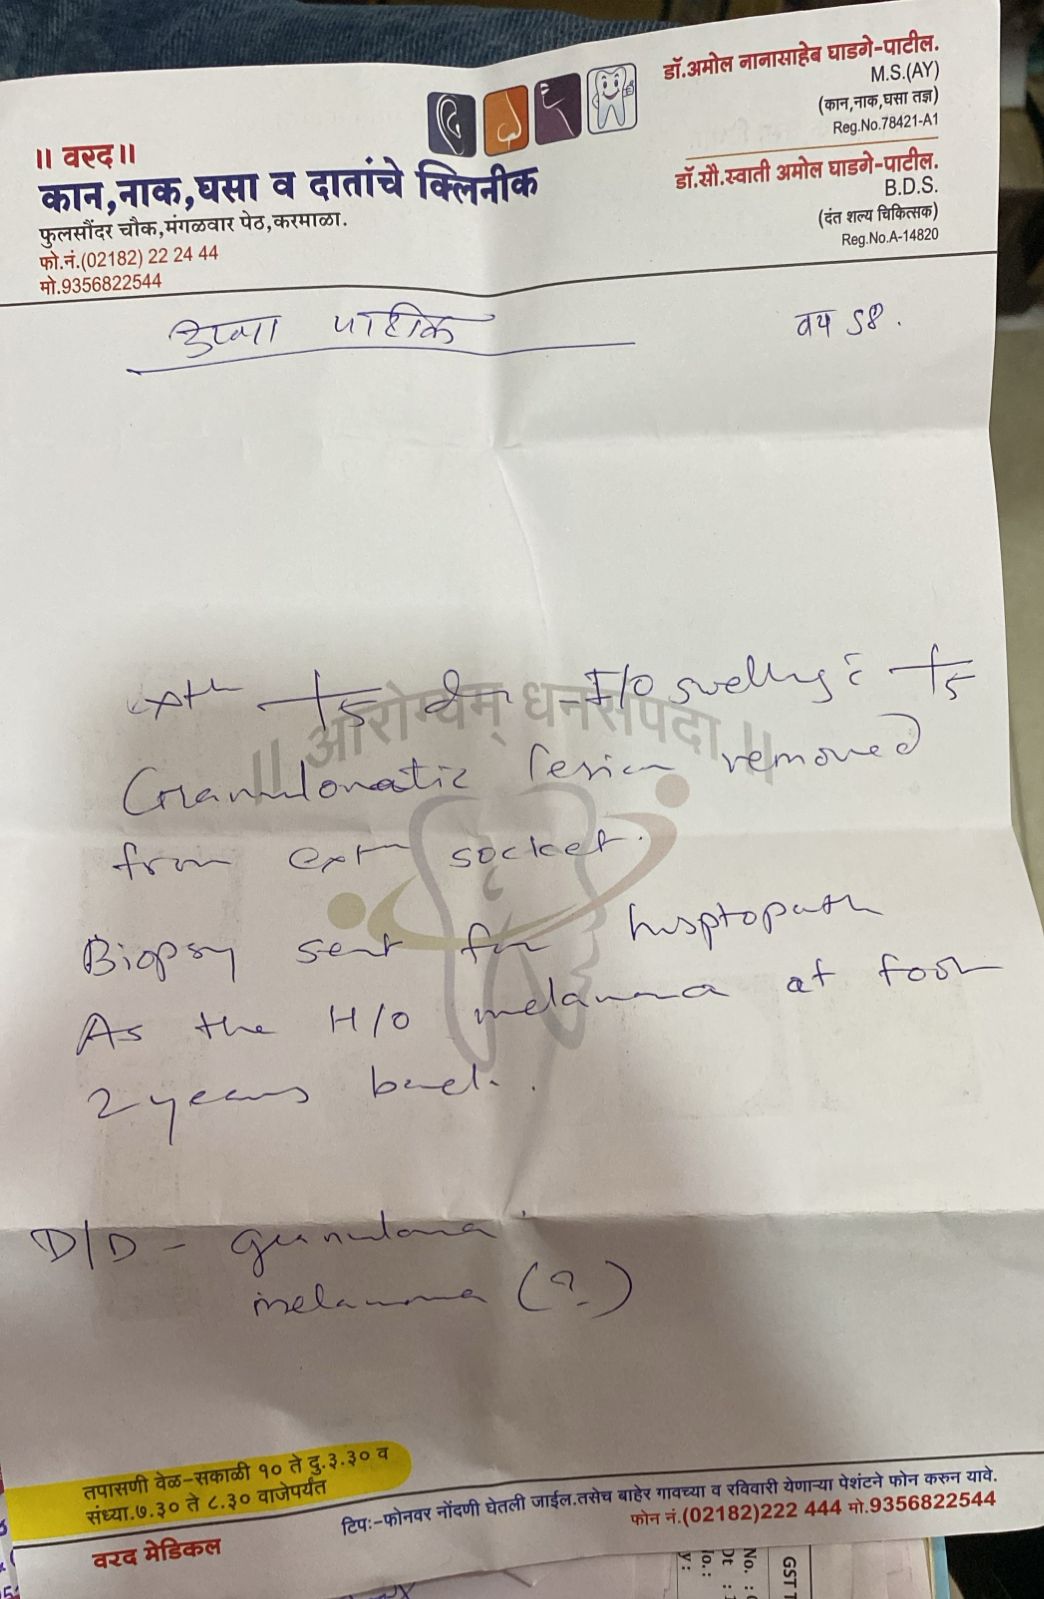 डॉ.अमोल नानासाहेब घाडगे-पाटील.
M.S.(AY)
(कान,नाक,घसा तज्ञ)
Reg.No.78421-A1
डॉ.सौ.स्वाती अमोल घाडगे-पाटील.
B.D.S.
(दंत शल्य चिकित्सक)
Reg.No.A-14820
॥ वरद॥
कान,नाक,घसा व दातांचे क्लिनीक
फुलसौंदर चौक,मंगळवार पेठ,करमाळा.
फो.नं.(02182) 22 24 44
मो.9356822544
वय 58.
extn 5 I/O swelling c̄ 5
|| आरोग्यम् धनसंपदा ||
Granulomatic lesion removed
from extn socket.
Biopsy sent for hisptopath
As the H/O melanoma at foot
2 years back.
D/D - granuloma
melanoma (?)
तपासणी वेळ-सकाळी १० ते दु.३.३० व
संध्या.७.३० ते ८.३० वाजेपर्यंत
टिपः-फोनवर नोंदणी घेतली जाईल.तसेच बाहेर गावच्या व रविवारी येणाऱ्या पेशंटने फोन करुन यावे.
फोन नं.(02182)222 444 मो.9356822544
वरद मेडिकल
GST
No. :
Dt :